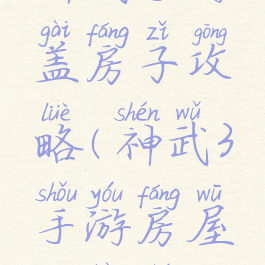 gài fáng zǐ gōng
盖房子攻
lüè shén wǔ
略(神武3
shǒu yóu fáng wū
手游房屋